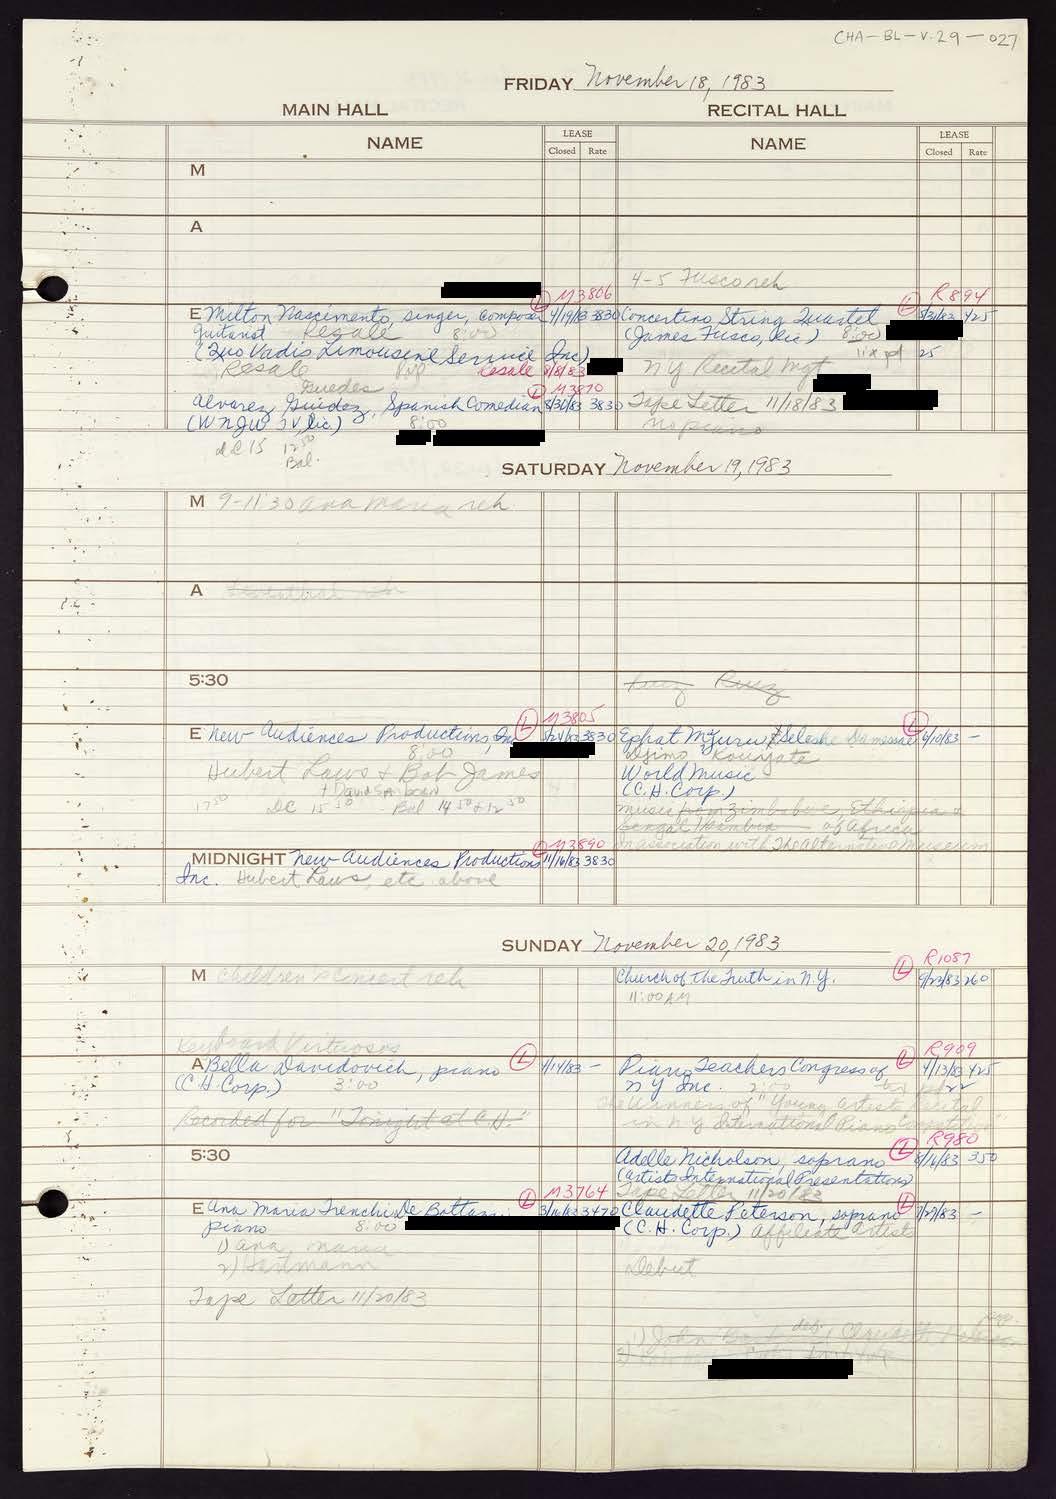 CHA-BL-V.29-027
FRIDAY November 18, 1983
MAIN HALL
RECITAL HALL
NAME
LEASE
Closed Rate
NAME
LEASE
Closed Rate
M
A
4-5 Fusco reh
M3806
E Milton Nascimento, singer, composer 4/19/83 3830
guitarist Resale 8:00
(Quo Vadis Limousine Service Inc)
Resale Resale 8/8/83
Guedes
M3870
Alvarez Guidez, Spanish Comedian 8/30/83 3830
(WNJU TV, Inc) 8:00
DC 15 12 50
Bal.
R894
Concertino String Quartet 3/31/83 425
(James Fusco, Dir) 8:00
25
NY Recital Mgt
Tape Letter 11/18/83
no piano
SATURDAY November 19, 1983
M 9-11:30 Ana Maria reh
A
5:30
M3805
E New Audiences Productions, Inc 3830
8:00
Hubert Laws + Bob James
+ David Sanborn
17 50 DC 15 50 Bal 14 50 + 12 50
M3890
MIDNIGHT New Audiences Productions 11/16/83 3830
Inc. Hubert Laws, etc above
Ephat Mujuru & Seleshe Damessae 6/10/83 -
Djimo Kouyate
World Music
(C.H. Corp.)
Music from Zimbabwe, Ethiopia &
Senegal/Gambia of Africa
in association with The Alternative Museum
SUNDAY November 20, 1983
M Children's Concert reh
Keyboard Virtuosos
A Bella Davidovich, piano 1/14/83 -
(C.H. Corp.) 3:00
Recorded for "Tonight at C.H."
5:30
M3764
E Ana Maria Trenchi De Bottazzi, 3470
piano 8:00
1) Ana Maria
2) Hartmann
Tape Letter 11/20/83
R1087
Church of the Truth in N.Y. 9/23/83 260
11:00 AM
R909
Piano Teachers Congress of 4/13/83 425
NY Inc. 2:00
The Winners of "Young Artists Recital
in N.Y. International Piano Competition"
R980
Adelle Nicholson, soprano 350
(Artists International Presentations)
Tape Letter 11/20/83
Claudette Peterson, soprano 7/27/83 -
(C.H. Corp.) Affiliate Artists
Debut